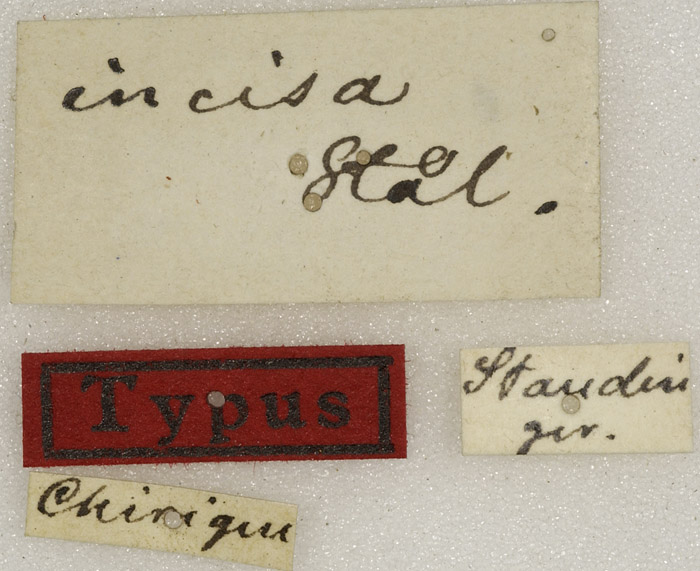 incisa
Stål.
Typus
Staudin
ger.
Chiriqui